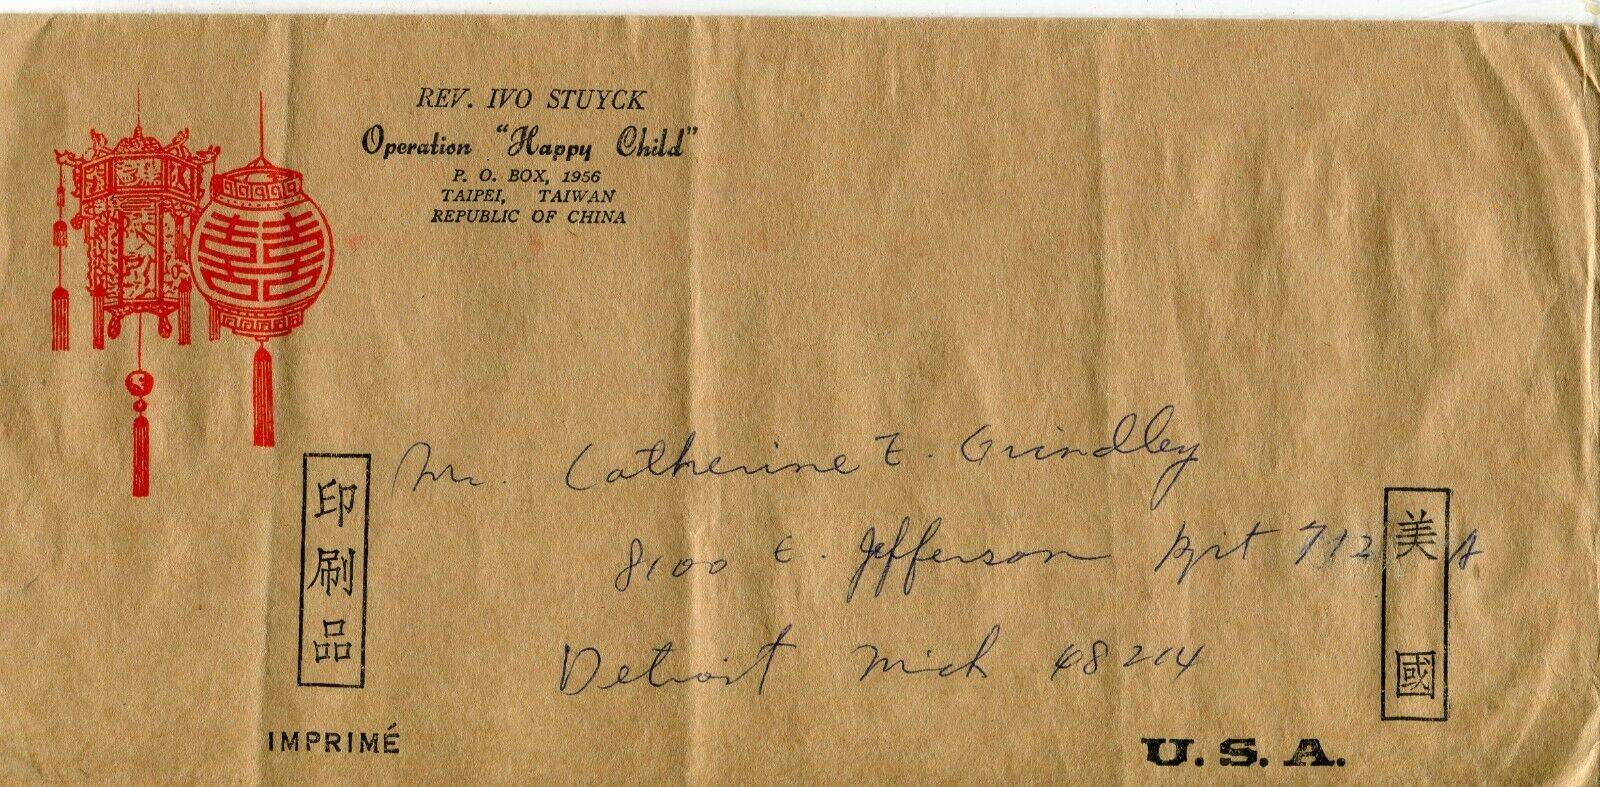 REV. IVO STUYCK
Operation "Happy Child"
P. O. BOX, 1956
TAIPEI, TAIWAN
REPUBLIC OF CHINA
印刷品
Mr. Catherine E. Grindley
8100 E. Jefferson Apt 712 A
Detroit Mich 48214
美國
IMPRIMÉ
U.S.A.